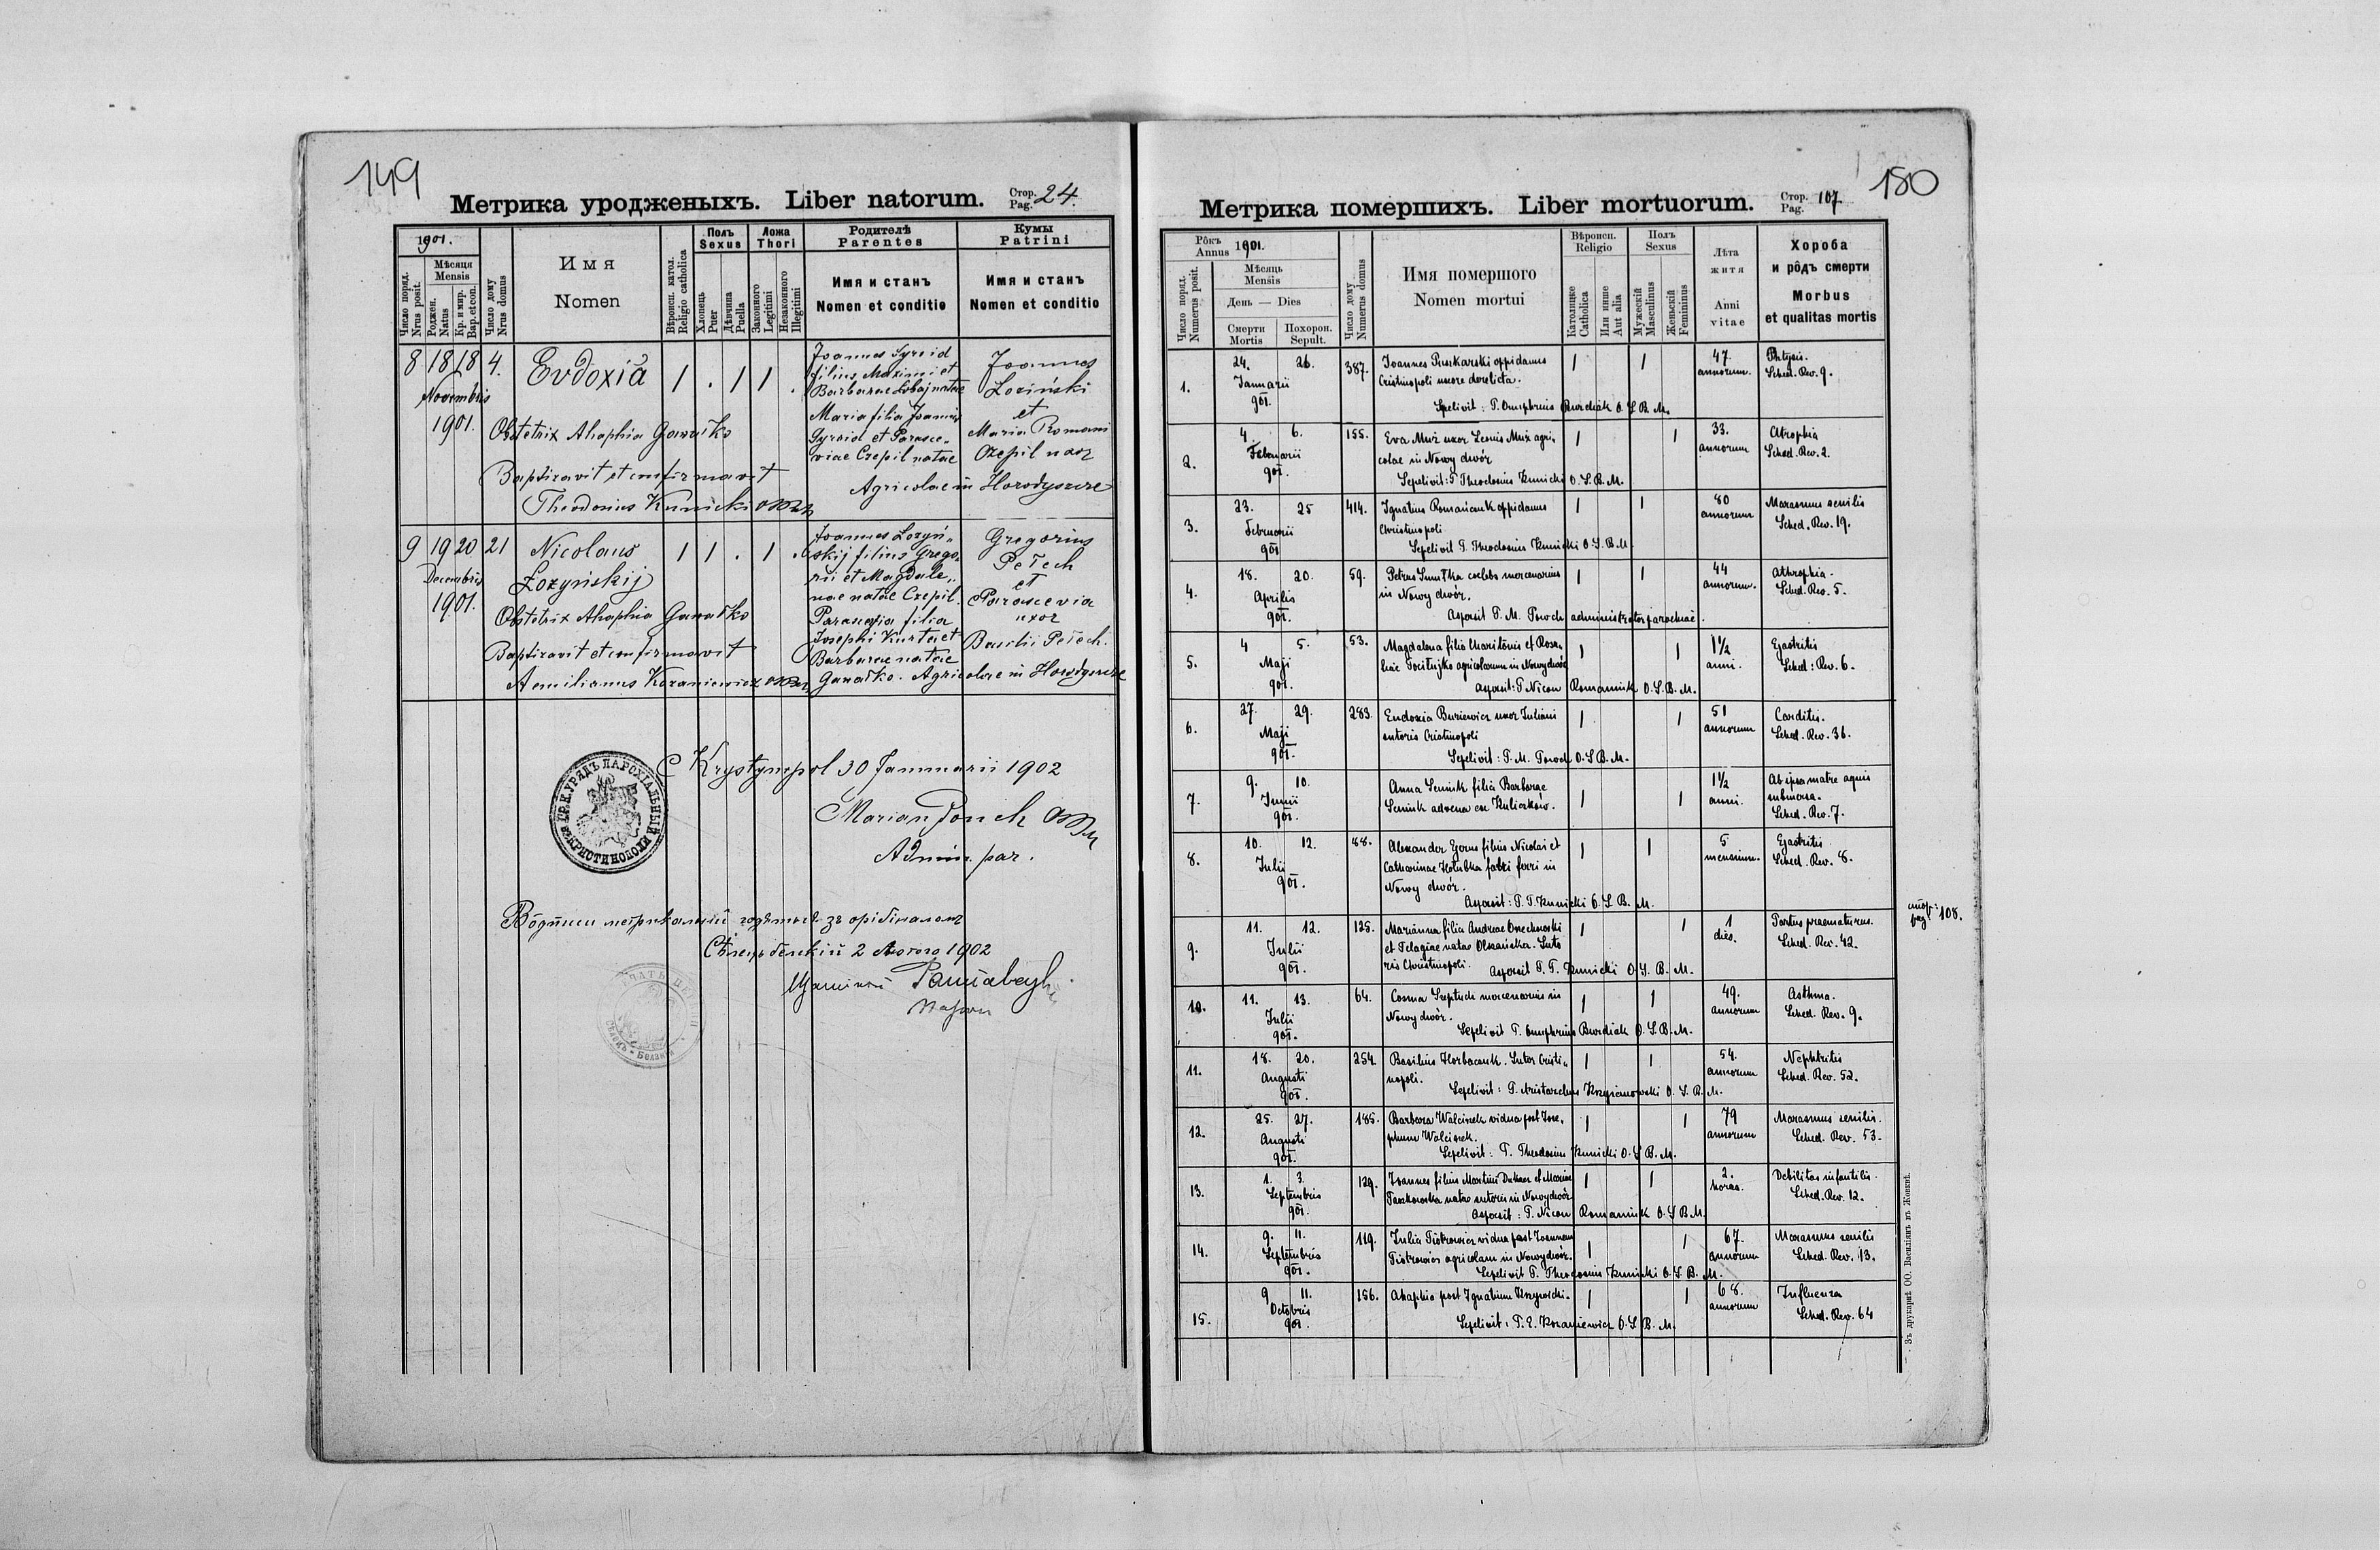 149
Метрика уродженыхъ. Liber natorum. Стор. Pag. 24.
1901.
Число поряд. Nrus posit.
Мѣсяця Mensis
Роджен. Natus
Кр. и мир. Bap. et con.
Число дому Nrus domus
Имя
Nomen
Вѣроисп. катол. Religio catholica
Полъ Sexus
Хлопець Puer
Дѣвчина Puella
Ложа Thori
Законного Legitimi
Незаконного Illegitimi
Родителѣ
Parentes
Имя и станъ
Nomen et conditio
Кумы
Patrini
Имя и станъ
Nomen et conditio
8 18 18 4. Eudoxia 1 . 1 1 .
Novembris
1901.
Joannes Syroid
filius Maximi et
Barbarae natae
Maria filia Joannis
Syroid et Parasce-
viae Czepil natae
Joannes
Łoziński
et
Maria Romani
Czepil uxor
Agricolae in Horodyszcze
Obstetrix Ahaphia Gawałko
Baptizavit et confirmavit
Theodosius Kunicki OSBM
9 19 20 21 Nicolaus 1 1 . 1 .
Łozyńskij
Decembris
1901.
Joannes Łozyń-
skij filius Grego-
rii et Magdale-
nae natae Czepil.
Parascevia filia
Josephi Kurta et
Barbarae natae
Gawałko. Agricolae in Horodyszcze
Gregorius
Pełech
et
Parascevia
uxor
Basilii Pełech.
Obstetrix Ahaphia Gawałko
Baptizavit et confirmavit
Aemilianus Kozaniewicz OSBM
Krystynopol 30 Januarii 1902
Marian Powch OSBM
Admin. par.
2 Лютого 1902
180
Метрика помершихъ. Liber mortuorum. Стор. Pag. 107.
Рôкъ Annus 1901.
Число поряд. Numerus posit.
Мѣсяць Mensis
День — Dies
Смерти Mortis
Похорон. Sepult.
Число дому Numerus domus
Имя помершого
Nomen mortui
Вѣроисп. Religio
Католицке Catholica
Или инше Aut alia
Полъ Sexus
Мужескій Masculinus
Женьскій Feminius
Лѣта
житя
Anni
vitae
Хороба
и рôдъ смерти
Morbus
et qualitas mortis
1. 24. 26. Januarii 901. 387. Joannes Puskarski oppidanus
Cristinopoli uxore derelicta. 1 1 47 annorum. Phtysis. Sched. Rev. 9.
Sepelivit: P. Onuphrius Burdiak O.S.B.M.
2. 4. 6. Februarii 901. 155. Eva Muż uxor Leonis Muż agri-
colae in Nowy dwór 1 1 33. annorum Atrophia Sched. Rev. 2.
Sepelivit: P. Theodosius Kunicki O.S.B.M.
3. 23. 25 Februarii 901 414. Ignatius Romańczuk oppidanus
Christinopoli 1 1 80 annorum Marasmus senilis Sched. Rev. 19.
Sepelivit P. Theodosius Kunicki O.S.B.M.
4. 18. 20. Aprilis 901. 59. Petrus caelebs mercenarius
in Nowy dwór. 1 1 44 annorum. Athrophia. Sched. Rev. 5.
Asposit P. M. Powch administrator parochiae.
5. 4 5. Maji 901. 53. Magdalena filia Charitonis et Rosa-
liae agricolarum in Nowydwór 1 1 1½ anni. Gastritis Sched: Rev. 6.
Asposit: P. Nicon Romaniuk O.S.B.M.
6. 27. 29. Maji 901. 283. Eudoxia Buriewicz uxor Juliani
sutoris Cristinopoli 1 1 51 annorum Carditis. Sched. Rev. 36.
Sepelivit: P. M. Powch O.S.B.M.
7. 9. 10. Junii 901. Anna Semiuk filia Barbarae
Semiuk advena ex Kuliczków. 1 1 1½ anni. Ab ipsa matre aquis
submersa.
Sched. Rev. 7.
8. 10. 12. Julii 901. 88. Alexander filius Nicolai et
Catharinae Hołubka fabri ferri in
Nowy dwór. 1 1 5 mensium. Gastritis Sched. Rev. 8.
Asposit: P. T. Kunicki O.S.B.M.
9. 11. 12. Julii 901. 125. Marianna filia Andreae Orechowski
et Pelagiae natae Olszańska. Suto
ris Christinopoli. 1 1 1 dies. Partus praematurus. Sched. Rev. 42.
Asposit P. T. Kunicki O.S.B.M.
10. 11. 13. Julii 901. 64. Cosma Szeptuch mercenarius in
Nowy dwór. 1 1 49. annorum Asthma. Sched. Rev. 9.
Sepelivit P. Onuphrius Burdiak O.S.B.M.
11. 18. 20. Augusti 901. 254. Basilius Horbaczuk. Sutor Cristi-
nopoli. 1 1 54. annorum Nephtritis Sched. Rev. 52.
Sepelivit: P. Aristarchus Kryżanowski O.S.B.M.
12. 25. 27. Augusti 901. 185. Barbara Walciszek vidua post Jose-
phum Walciszek. 1 1 79 annorum Marasmus senilis. Sched. Rev. 53.
Sepelivit: P. Theodosius Kunicki O.S.B.M.
13. 1. 3. Septembris 901. 129. Joannes filius Martini et Mariae
Paszkowska natae sutoris in Nowydwór 1 1 2. horas. Debilitas infantilis. Sched. Rev. 12.
Asposit: P. Nicon Romaniuk O.S.B.M.
14. 9. 11. Septembris 901. 119. Julia Piotrowicz vidua post Joannem
Piotrowicz agricolam in Nowydwór. 1 1 67. annorum Marasmus senilis Sched. Rev. 13.
Sepelivit P. Theodosius Kunicki O.S.B.M.
15. 9 11. Octobris 901. 156. Ahaphia post Ignatium 1 1 68. annorum Influenza Sched. Rev. 64
Sepelivit: P. E. Kozaniewicz O.S.B.M.
стор. pag. 108.
Зъ друкарнѣ ОО. Василіянъ въ Жовквѣ.